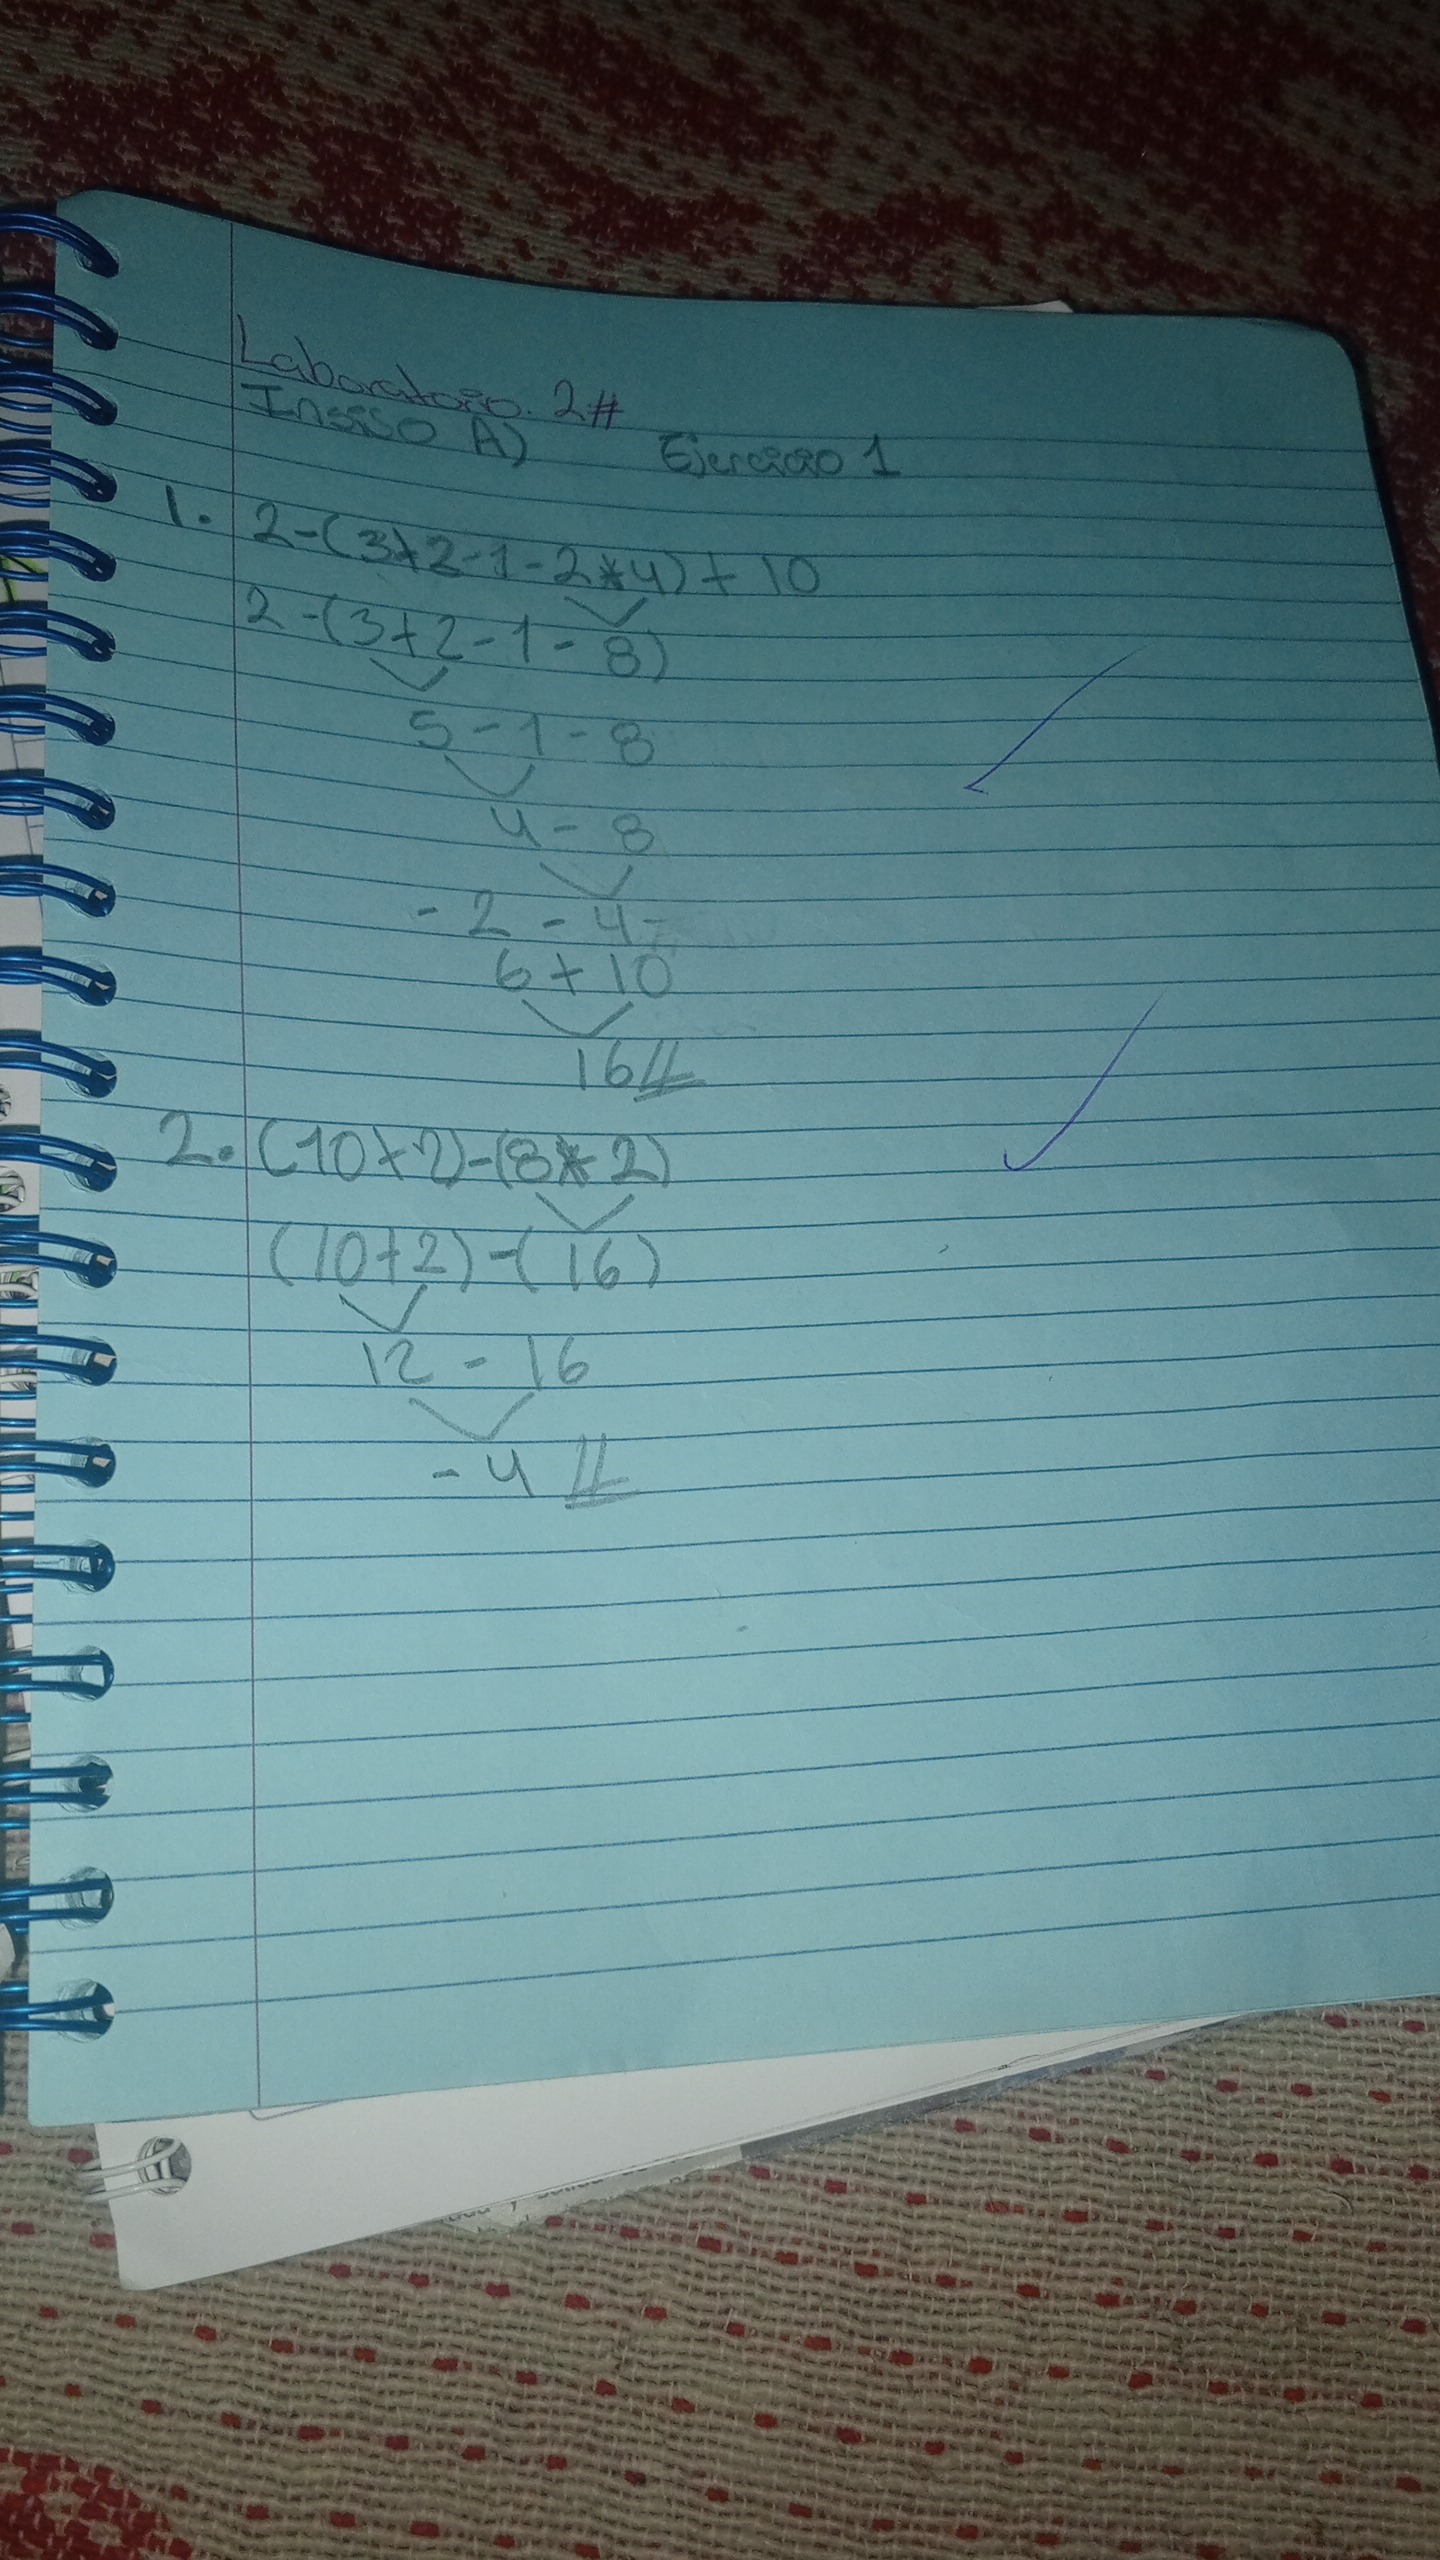 Laboratorio. 2#
Insiso A) Ejercicio 1
1. 2-(3+2-1-2*4)+10
2-(3+2-1-8)
5-1-8
4-8
-2-4-
6+10
16
2. (10+2)-(8*2)
(10+2)-(16)
12-16
-4